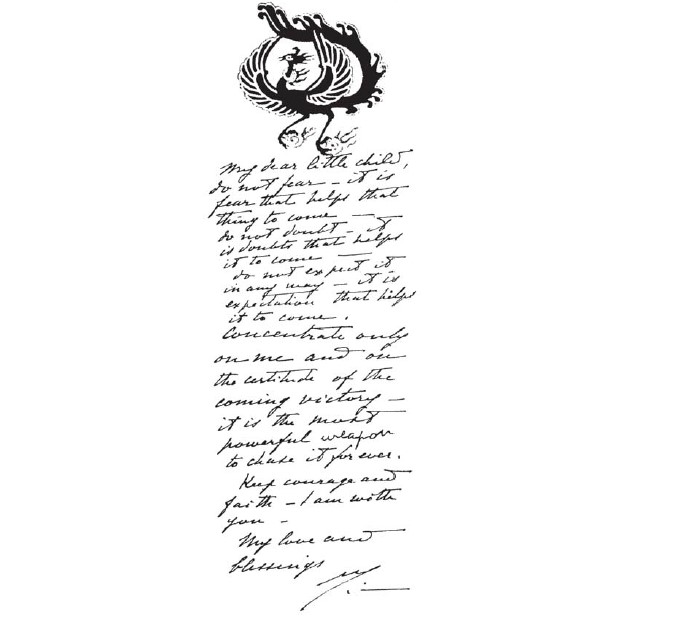 My dear little child,
do not fear – it is
fear that helps that
thing to come —
do not doubt – it
is doubts that helps
it to come —
do not expect it
in any way – it is
expectation that helps
it to come.
Concentrate only
on me and on
the certitude of the
coming victory –
it is the most
powerful weapon
to chase it for ever.
Keep courage and
faith – I am with
you –
My love and
blessings